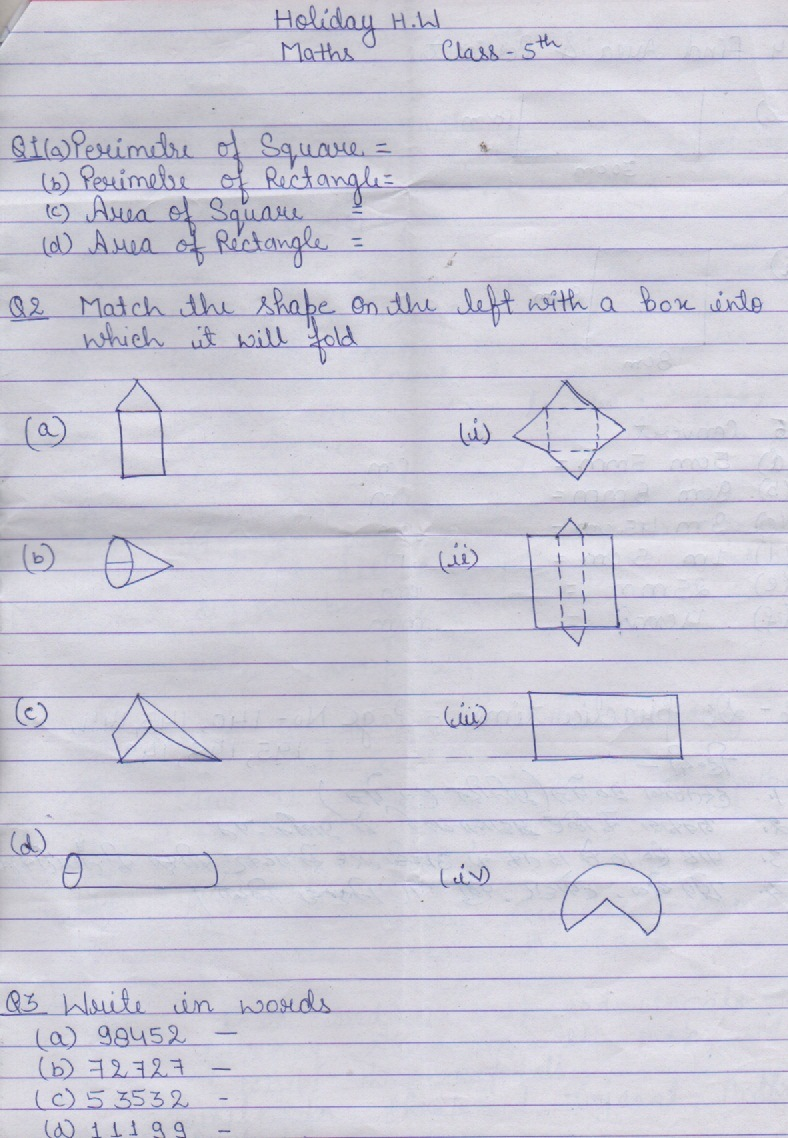 Holiday H.W
Maths Class - 5th
Q1(a) Perimetre of Square =
(b) Perimetre of Rectangle =
(c) Area of Square =
(d) Area of Rectangle =
Q2 Match the shape on the left with a box into
which it will fold
(a) (i)
(b) (ii)
(c) (iii)
(d)
(iv)
Q3 Write in words
(a) 98452 —
(b) 72727 —
(c) 53532 -
(d) 11199 -